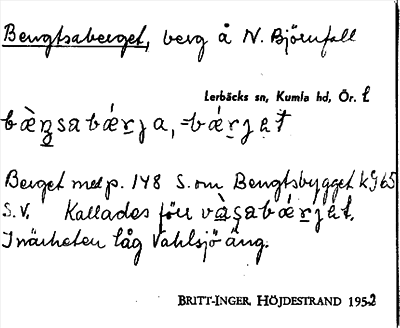 Bengtsaberget, berg å N. Björnfall
Lerbäcks sn, Kumla hd, Ör. l
bæ̀n̲sabǽr̲ja, =bǽr̲ja̲t
Berget med p. 148 S. om Bengtsbygget kg 65
S.V. Kallades förr và̲s̲abǽr̲jat.
I närheten låg Vahlsjöäng.
BRITT-INGER HÖJDESTRAND 1952